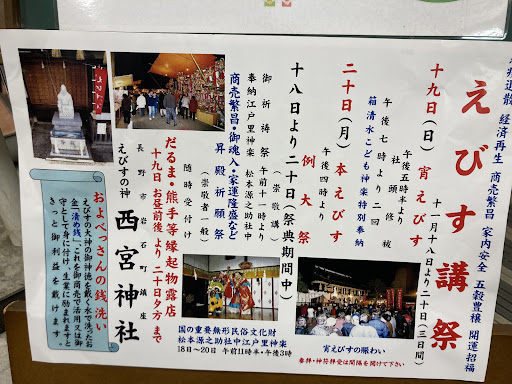 疫退散 経済再生 商売繁昌 家内安全 五穀豊穣 開運招福
えびす講祭
十一月十八日より二十日(三日間)
十九日(日) 宵えびす
午後五時半より
社頭修祓
午後七時より二回
箱清水こども神楽特別奉納
二十日(月) 本えびす
例大祭
午後四時より
十八日より二十日(祭典期間中)
御祈祷祭 午前十一時より
(崇敬講)
奉納江戸里神楽 松本源之助社中
商売繁昌・御魂入・家運隆盛など
昇殿祈願祭
随時受付
(崇敬者一般)
だるま・熊手等縁起物露店
十九日 お昼前後より 二十日夕方まで
長野市岩石町鎮座
えびすの神 西宮神社
およべっさんの銭洗い
えびすの大神の御神徳を戴く水で洗ったお
金「清め銭」。これを御商売で活用又は御
守として身に付け、生業に励まれますと
きっと御利益を戴けます。
国の重要無形民俗文化財
松本源之助社中江戸里神楽
18日～20日 午前11時半・午後3時
宵えびすの賑わい
参拝・神符拝受は間隔を開けて下さい